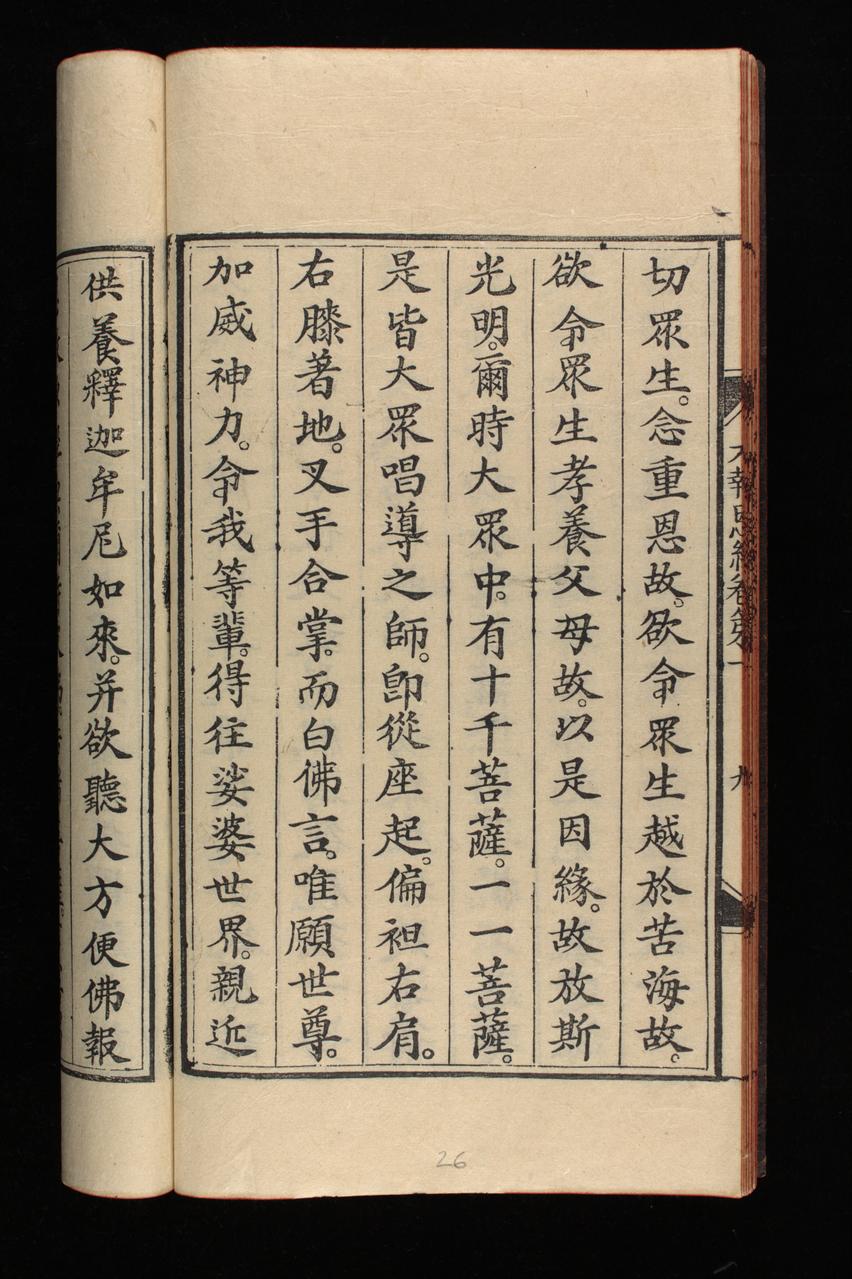 切眾生。念重恩故。欲令眾生越於苦海故。
欲令眾生孝養父母故。以是因緣。故放斯
光明。爾時大眾中。有十千菩薩。一一菩薩。
是皆大眾唱導之師。卽從座起。偏袒右肩。
右膝著地。叉手合掌。而白佛言。唯願世尊。
加威神力。令我等輩。得往娑婆世界。親近
供養釋迦牟尼如來。并欲聽大方便佛報
報恩經卷第一
九
26